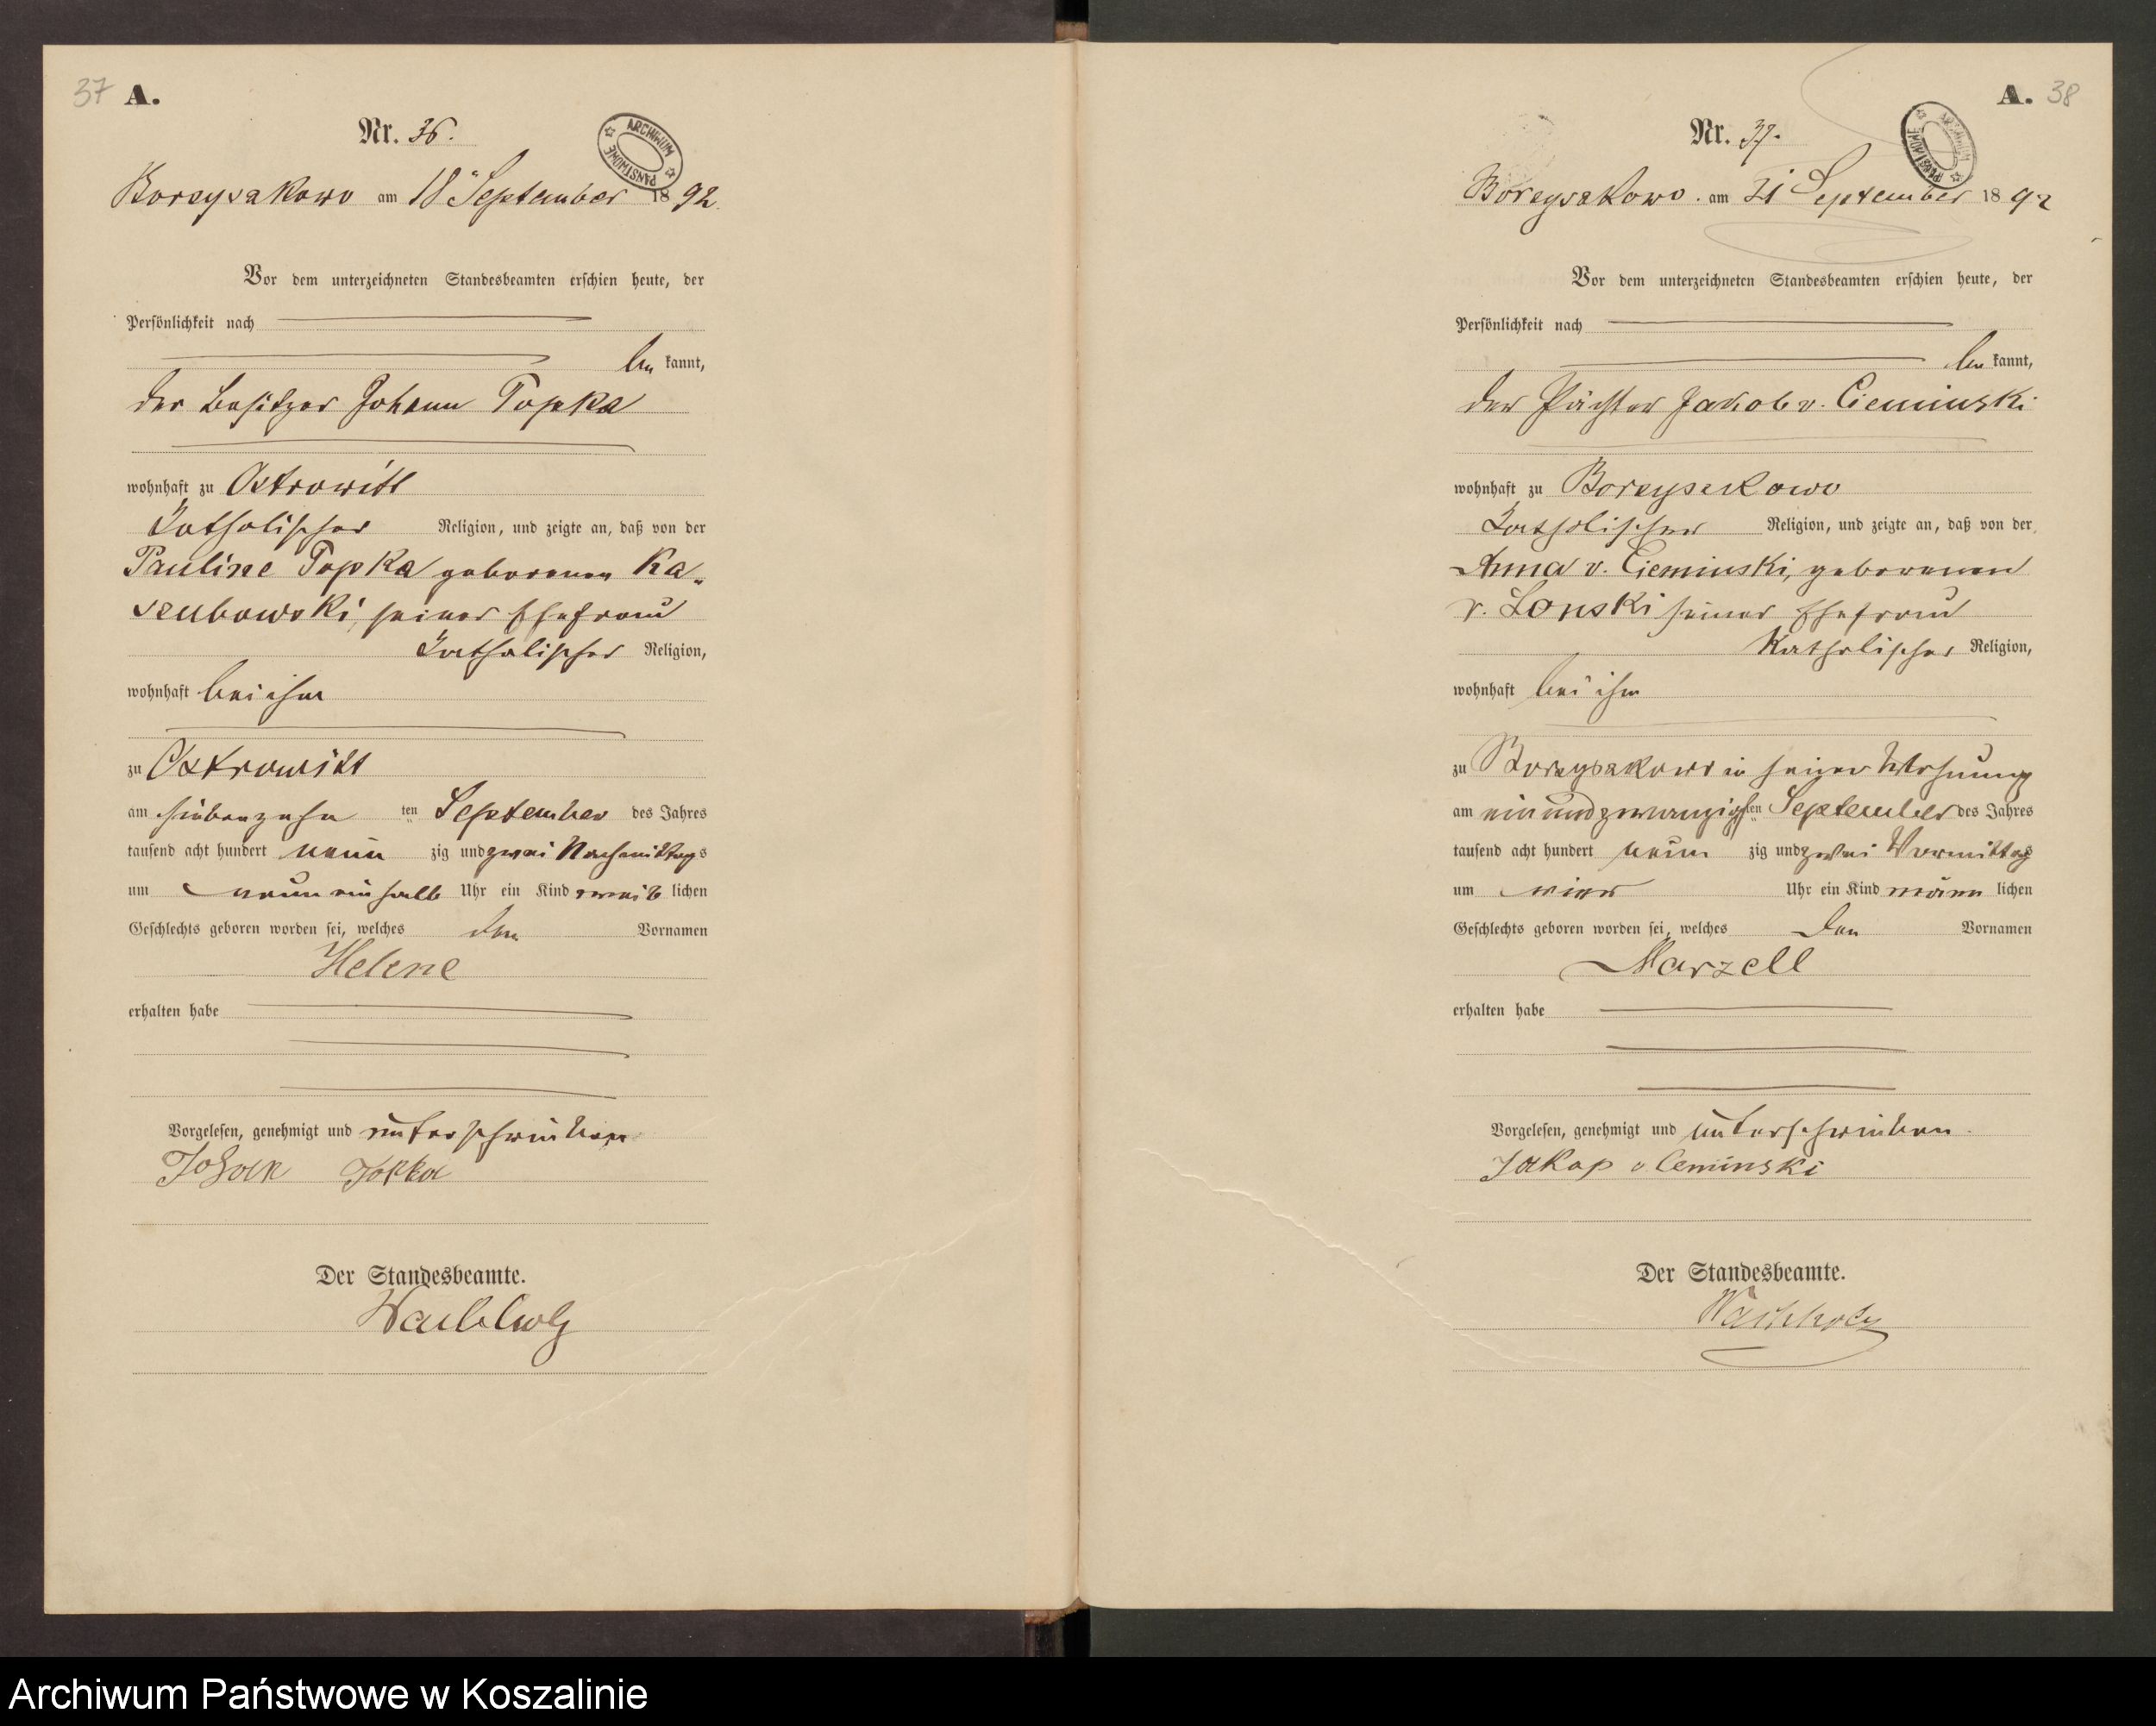 37 A.
Nr. 36.
ARCHIWUM PAŃSTWOWE
Borzyszkowo am 18 September 1892.
Vor dem unterzeichneten Standesbeamten erschien heute, der
Persönlichkeit nach
be kannt,
der Besitzer Johann Popka
wohnhaft zu Ostrowitt
katholischer Religion, und zeigte an, daß von der
Pauline Popka geborenen Ka-
seubowski, seiner Ehefrau
katholischer Religion,
wohnhaft bei ihm
zu Ostrowitt
am siebenzehn ten September des Jahres
tausend acht hundert neun zig und zwei Nachmittags
um neun ein halb Uhr ein Kind weib lichen
Geschlechts geboren worden sei, welches den Vornamen
Helene
erhalten habe
Vorgelesen, genehmigt und unterschrieben
Johan Popka
Der Standesbeamte.
Wachholz
A. 38
Nr. 37.
ARCHIWUM PAŃSTWOWE
Borzyszkowo. am 21 September 1892
Vor dem unterzeichneten Standesbeamten erschien heute, der
Persönlichkeit nach
be kannt,
der Pächter Jakob v. Cieminski
wohnhaft zu Borzyszkowo
katholischer Religion, und zeigte an, daß von der
Anna v. Cieminski, geborenen
v. Lonski seiner Ehefrau
katholischer Religion,
wohnhaft bei ihm
zu Borzyszkowo in seiner Wohnung
am ein und zwanzigsten September des Jahres
tausend acht hundert neun zig und zwei Vormittag
um vier Uhr ein Kind männ lichen
Geschlechts geboren worden sei, welches den Vornamen
Marzell
erhalten habe
Vorgelesen, genehmigt und unterschrieben.
Jakop v Ceminski
Der Standesbeamte.
Wachholz
Archiwum Państwowe w Koszalinie